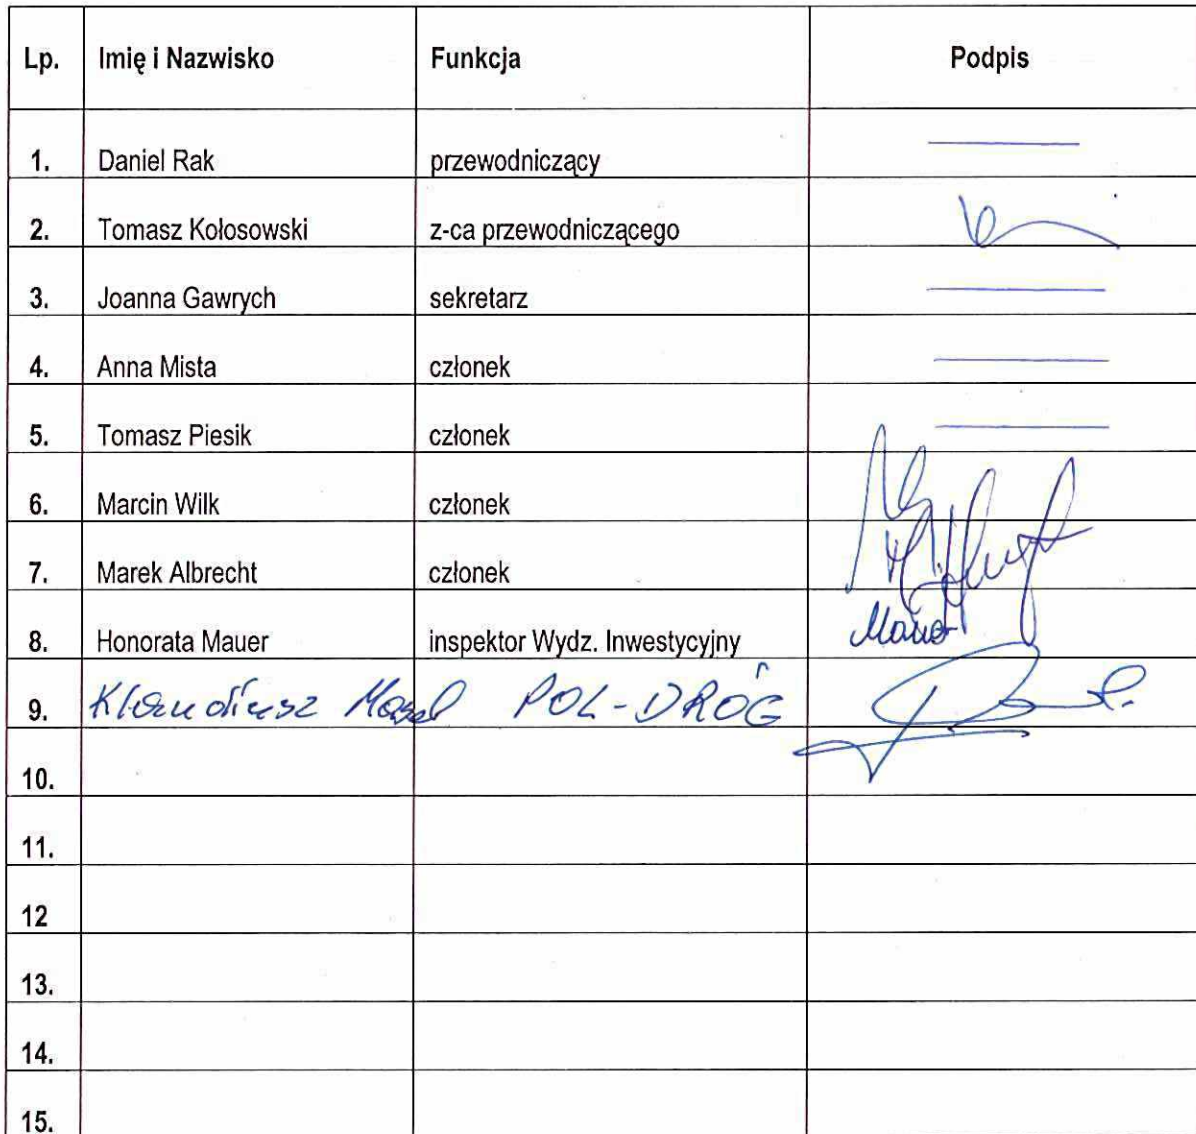 Lp. Imię i Nazwisko Funkcja Podpis
1. Daniel Rak przewodniczący
2. Tomasz Kołosowski z-ca przewodniczącego
3. Joanna Gawrych sekretarz
4. Anna Mista członek
5. Tomasz Piesik członek
6. Marcin Wilk członek
7. Marek Albrecht członek
8. Honorata Mauer inspektor Wydz. Inwestycyjny
9. Klaudiusz POL-DRÓG
10.
11.
12
13.
14.
15.